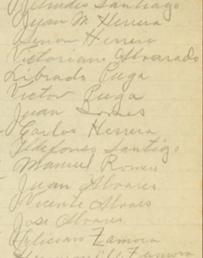 Santiago
Juan M. Herrera
Herrera
Victoriano Alvarado
Librado Puga
Victor Puga
Juan
Carlos Herrera
Ildefonso Santiago
Manuel Romero
Juan Alvares
Vicente Alvares
Jose Alvares
Feliciano Zamora
Zamora